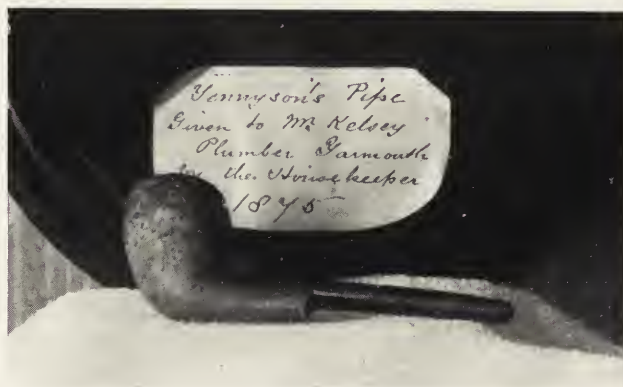 Tennyson's Pipe
Given to Mr Kelsey
Plumber Yarmouth
by the Housekeeper
1875